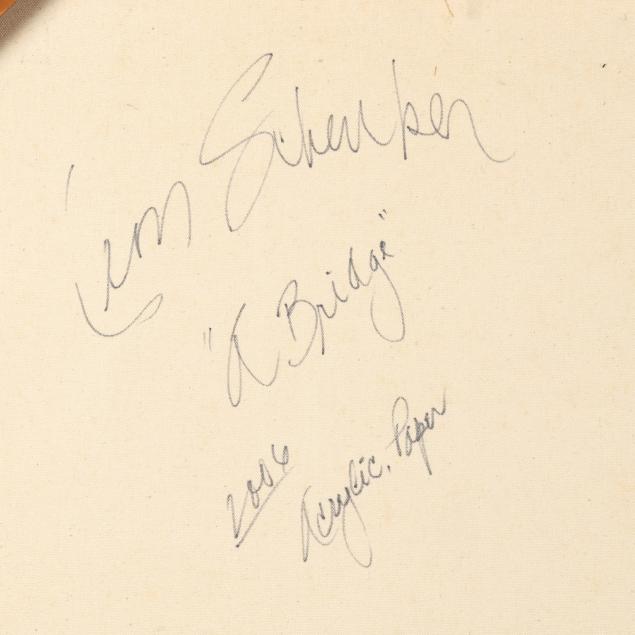 Schenker
"A Bridge"
2006
Acrylic, Paper